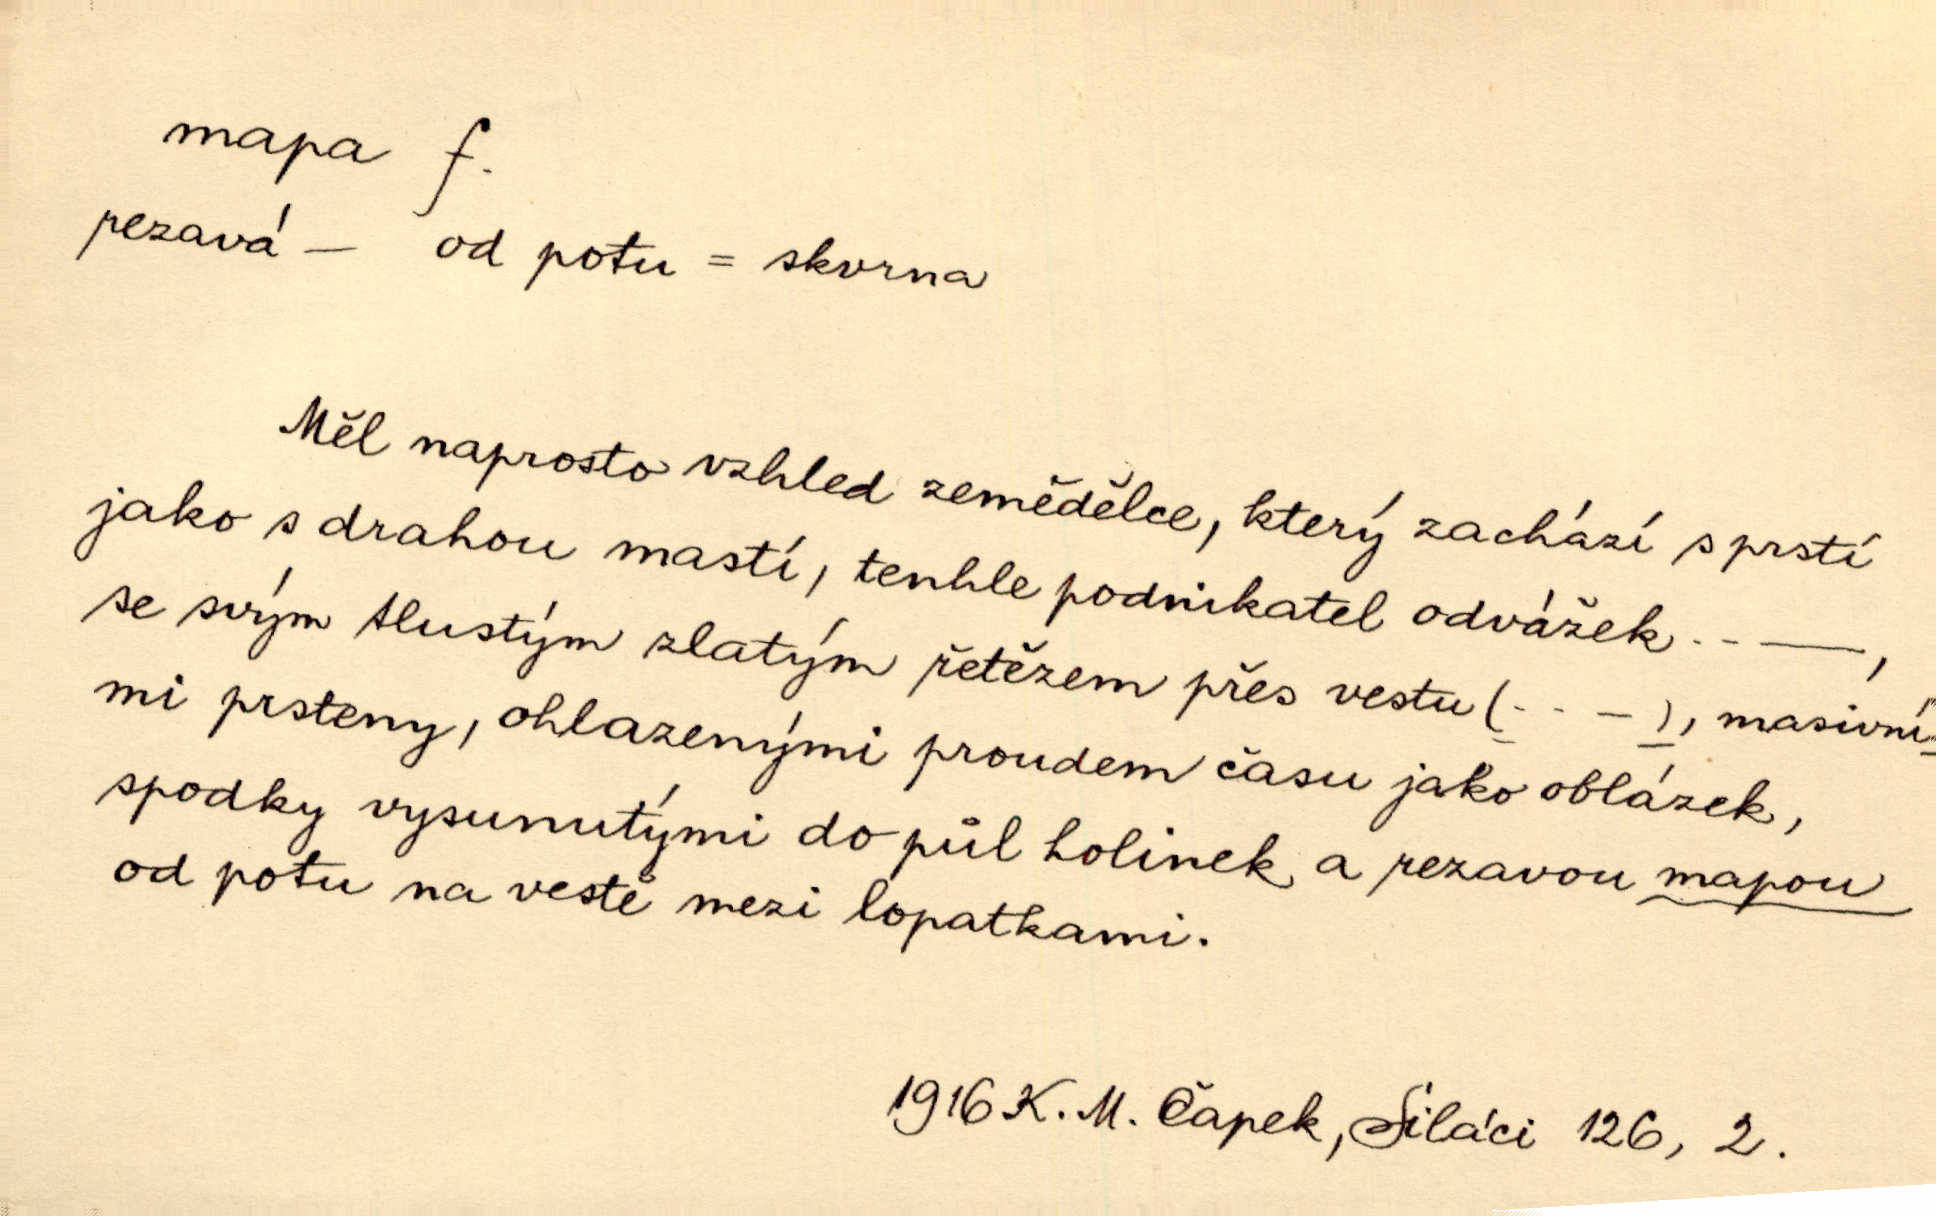 mapa f.
rezavá — od potu = skvrna
Měl naprosto vzhled zemědělce, který zachází s prstí
jako s drahou mastí, tenhle podnikatel odvážek .. —,
se svým tlustým zlatým řetězem přes vestu (.. —), masivní-
mi prsteny, ohlazenými proudem času jako oblázek,
spodky vysunutými do půl holinek a rezavou mapou
od potu na vestě mezi lopatkami.
1916 K. M. Čapek, Siláci 126, 2.